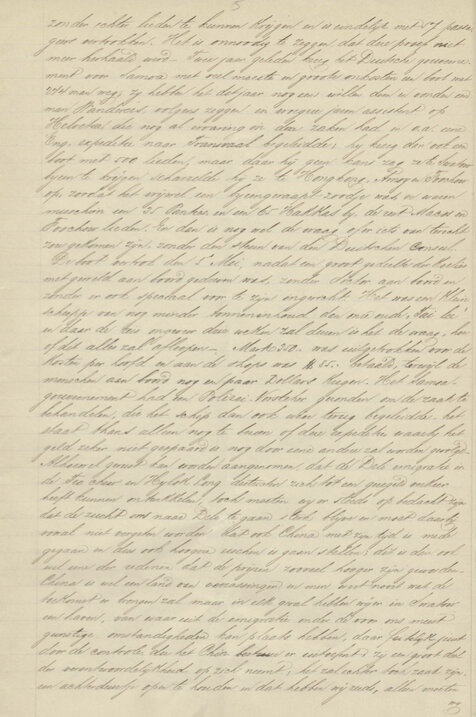 5
zonder rechte lieden te kunnen krijgen en is eindelijk met 54 passa
giers vertrokken. Het is onnoodig te zeggen dat die proef niet
meer herhaald werd. Twee jaar geleden kreeg het Duitsche gouverne
ment voor Samoa met veel moeite en groote onkosten een boot met
274 man weg; zij hebben het dit jaar nog eens willen doen en onder
man volgens zeggen en vroeger jaren assistent op
die nog al ervaring in dien zaken had en o.a. eene
Eng. expeditie naar Transvaal begeleidde; hij kreeg dan ook een
boot met 500 lieden, maar daar hij geen kans zag ze te Swatow
bijeen te krijgen scharrelde hij ze te Hongkong, Amoy en Foochow
op, zoodat het vrijwel een bijeengeraapt zoodje was, er waren
misschien een 25 en een 15 Hakkas bij, de rest Macao en
Foochow lieden. En dan is nog wel de vraag of er iets van terecht
zou gekomen zijn, zonder den steun van den Duitschen Consul.
De boot vertrok den 1e Mei, nadat een groot gedeelte der Koelies
met geweld aan boord gedreven was, zonder dokter aan boord en
zonder er ook speciaal voor te zijn ingericht. Het was een klein
scheepje van nog minder tonneninhoud dan
en daar de reis ongeveer drie weken zal duren is het de vraag, hoe
of dit alles zal afloopen. Mark 350.- was uitgetrokken voor de
kosten per hoofd en aan de shops was $ 55.- betaald, terwijl de
menschen aan boord nog een paar Dollars kregen. Het Samoa
gouvernement had een Polizei Vorsteher gezonden om de zaak te
behandelen, die het schip dan ook weer terug begeleidde. Het
staat thans allen nog te bezien of deze expeditie waarbij het
geld zeker niet gespaard is nog door eene andere zal worden gevolgd.
Alhoewel gerust kan worden aangenomen, dat de Deli emigratie in
de districten zich tot een gezegd verkeer
heeft kunnen ontwikkelen, toch moeten wij er steeds op bedacht zijn
dat de zucht om naar Deli te gaan sterk blijve en moet daarbij
vooral niet vergeten worden, dat ook China met zijn tijd is mede
gegaan en dus ook hoogere eischen is gaan stellen; dit is dan ook
wel een der redenen dat de prijzen zooveel hooger zijn geworden.
China is wel een land van verrassingen en men weet nooit wat de
toekomst er brengen zal, maar in elk geval hebben wij er in Swatow
een haven, van waar uit de emigratie onder de voor ons meest
gunstige omstandigheden kan plaats hebben, daar feitelijk juist
door de controle die het Chin. er uitoefent, zij een groot deel
der verantwoordelijkheid op zich neemt; het zal echter zaak zijn
een achterdeurtje open te houden en dat hebben wij reeds, allen moeten